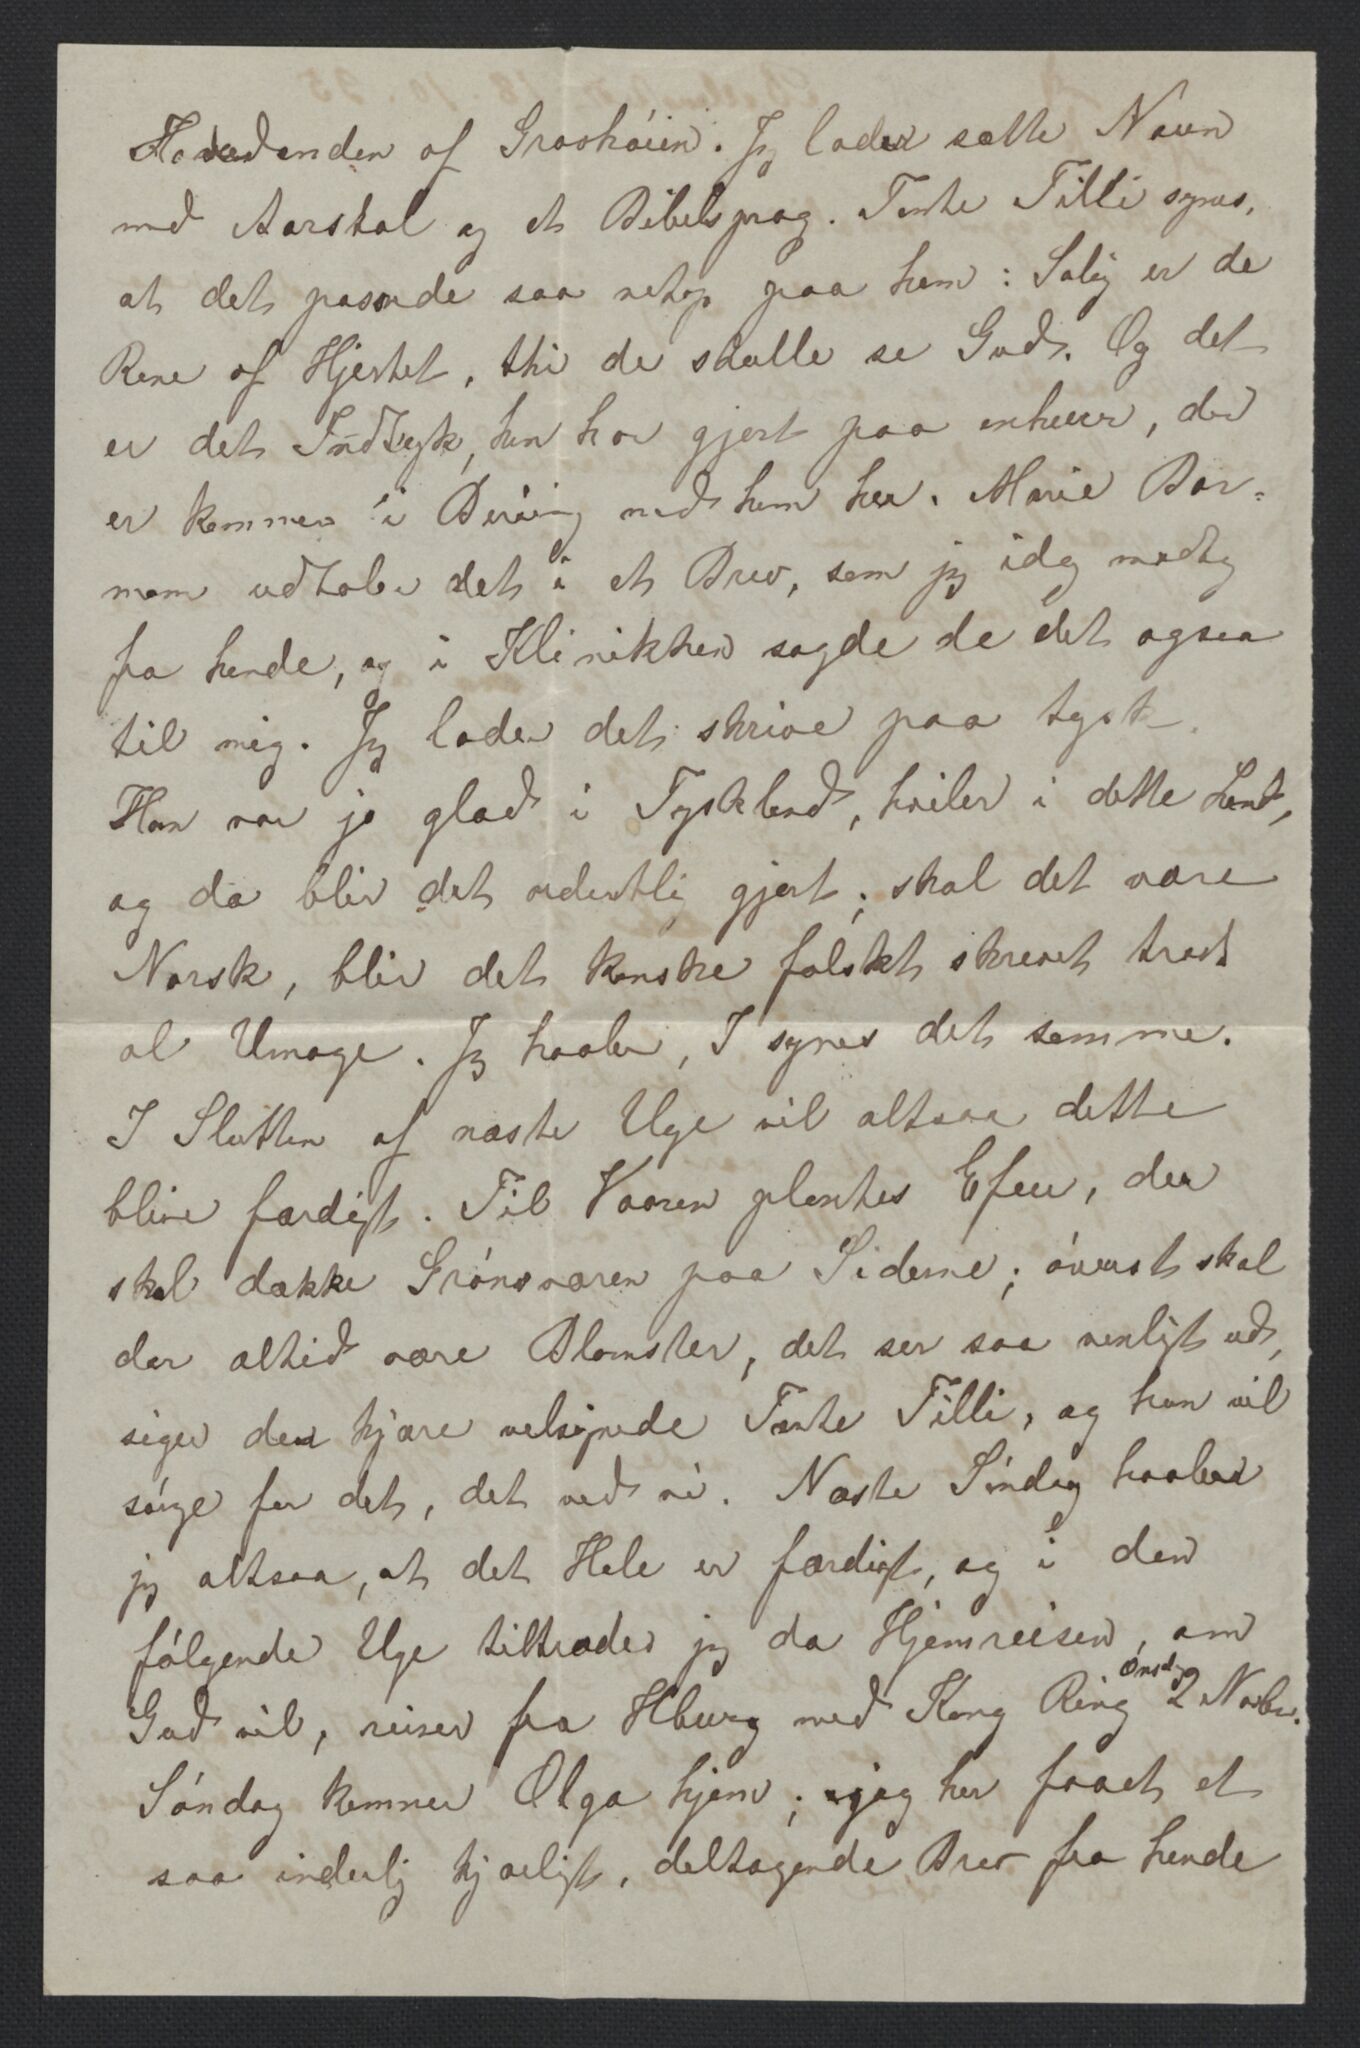 Hovedenden af Gravhóien. Jeg lader sætte Navn
med Aarstal og et Bibelsprog. Tante Tilli synes,
at det passede saa netop paa ham: Salig er de
Rene af Hjertet, thi de skulle se Gud. Og det
er det Indtryk, han har gjort paa enhver, der
er kommen i Beröring med ham her. Marie Bor-
mann udtaler det i et Brev, som jeg idag modtog
fra hende, og i Klinikken sagde de det ogsaa
til mig. Jeg lader det skrive paa tysk.
Han var jo glad i Tyskland, hviler i dette Land,
og da blir det ordentlig gjort; skal det være
Norsk, blir det kanske falskt skrevet trods
al Umage. Jeg haaber, I synes det samme.
I Slutten af næste Uge vil altsaa dette
blive færdigt. Til Vaaren plantes Efeu, der
skal dække Grónsværen paa Siderne; óverst skal
der altid være Blomster, det ser saa venligt ud,
siger den kjære velsignede Tante Tilli, og hun vil
sórge for det, det ved vi. Næste Sóndag haaber
jeg altsaa, at det Hele er færdigt, og i den
fólgende Uge tiltræder jeg da Hjemreisen, om
Gud vil, reiser fra Hburg med Kong Ring Onsdg 2 Novbr.
Sóndag kommer Olga hjem; jeg har faaet et
saa inderlig kjærligt, deltagende Brev fra hende